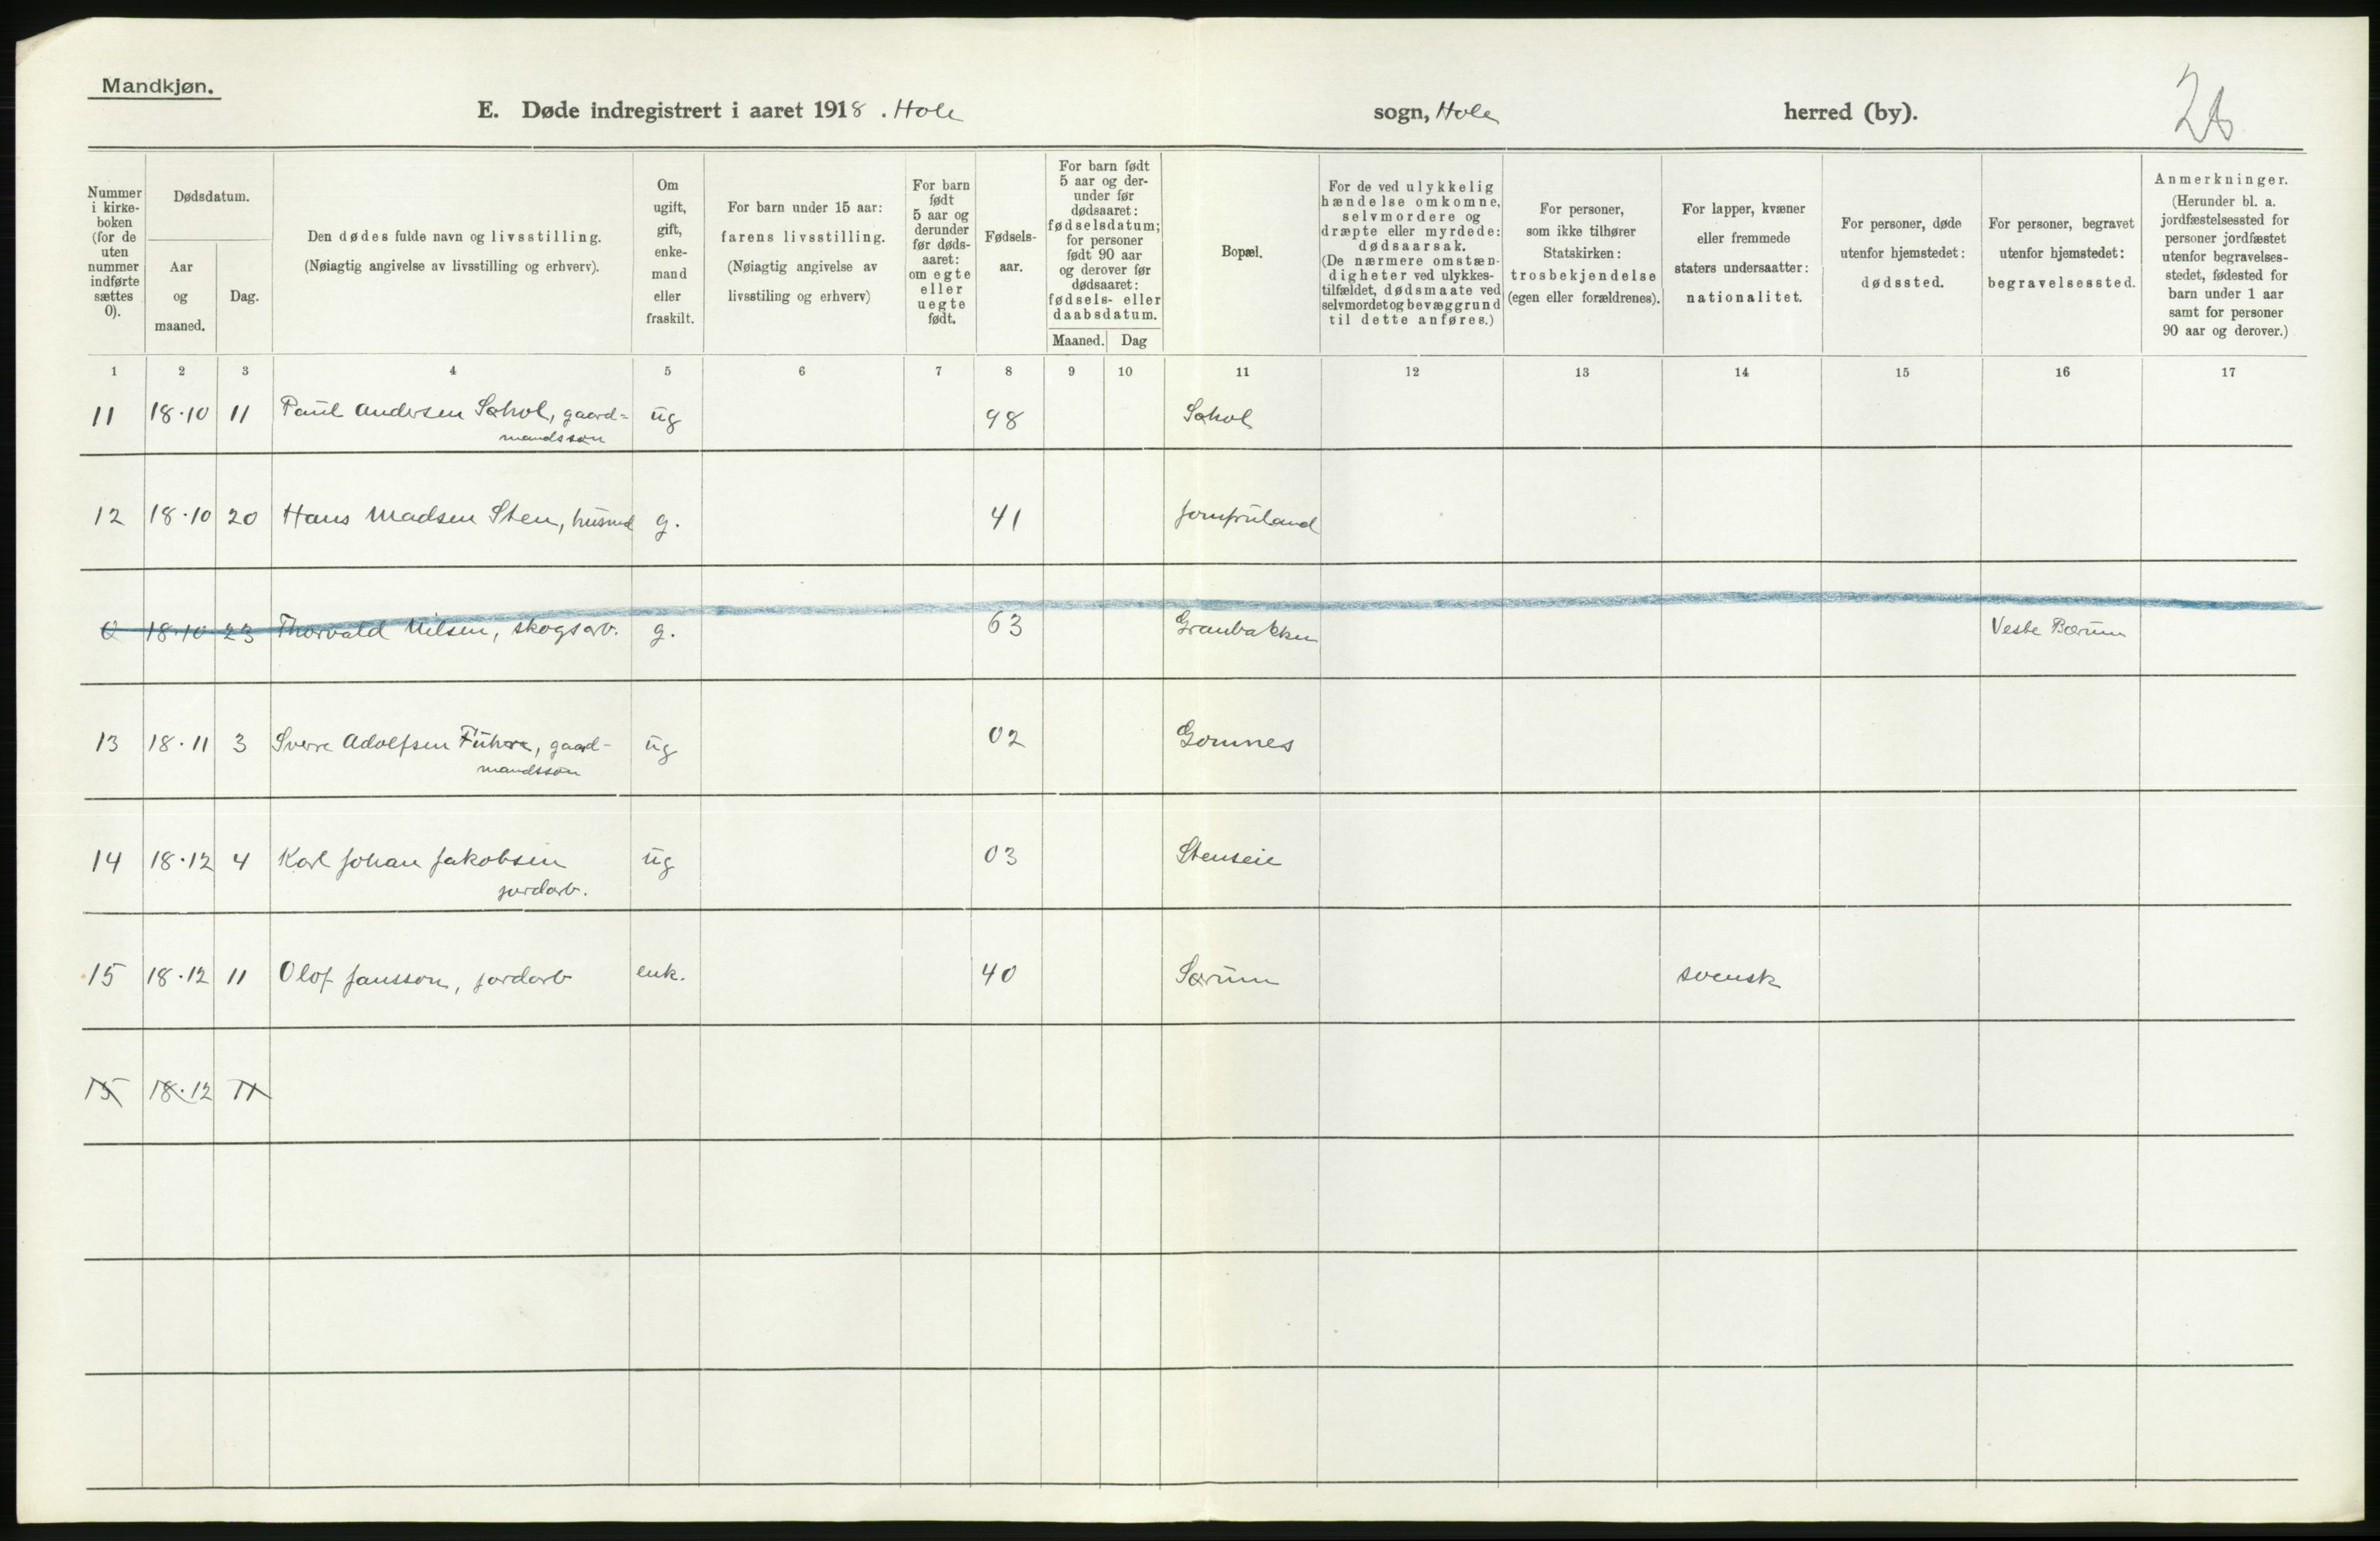 Mandkjøn.
E. Døde indregistrert i aaret 1918. Hole sogn, Hole herred (by).
Nummer i kirke-boken (for de uten nummer indførte sættes 0).
Dødsdatum.
Aar og maaned.
Dag.
Den dødes fulde navn og livsstilling.
(Nøiagtig angivelse av livsstilling og erhverv).
Om ugift, gift, enke-mand eller fraskilt.
For barn under 15 aar: farens livsstilling.
(Nøiagtig angivelse av livsstiling og erhverv)
For barn født 5 aar og derunder før døds-aaret: om egte eller uegte født.
Fødsels-aar.
For barn født 5 aar og der-under før dødsaaret: fødselsdatum; for personer født 90 aar og derover før dødsaaret: fødsels- eller daabsdatum.
Maaned. Dag
Bopæl.
For de ved ulykkelig hændelse omkomne, selvmordere og dræpte eller myrdede: dødsaarsak.
(De nærmere omstæn-digheter ved ulykkes-tilfældet, dødsmaate ved selvmordet og bevæggrund til dette anføres.)
For personer, som ikke tilhører Statskirken: trosbekjendelse (egen eller forældrenes).
For lapper, kvæner eller fremmede staters undersaatter: nationalitet.
For personer, døde utenfor hjemstedet: dødssted.
For personer, begravet utenfor hjemstedet: begravelsessted.
Anmerkninger.
(Herunder bl. a. jordfæstelsessted for personer jordfæstet utenfor begravelses-stedet, fødested for barn under 1 aar samt for personer 90 aar og derover.)
1 2 3 4 5 6 7 8 9 10 11 12 13 14 15 16 17
11 18·10 11 Paul Andersen Sohol, gaard= ug 98 Sohol
mandsson
12 18·10 20 Hans Madsen Sten, husmd g. 41 Jomfruland
0 18·10 23 Thorvald Nilsen, skogsarb. g. 63 Granbakken Vestre Bærum
13 18·11 3 Sverre Adolfsen Fuhre, gaard- ug 02 Gomnes
mandsson
14 18·12 4 Karl Johan Jakobsen ug 03 Stenseie
jordarb.
15 18·12 11 Olof Jansson, jordarb enk. 40 Sørum svensk
15 18·12 11